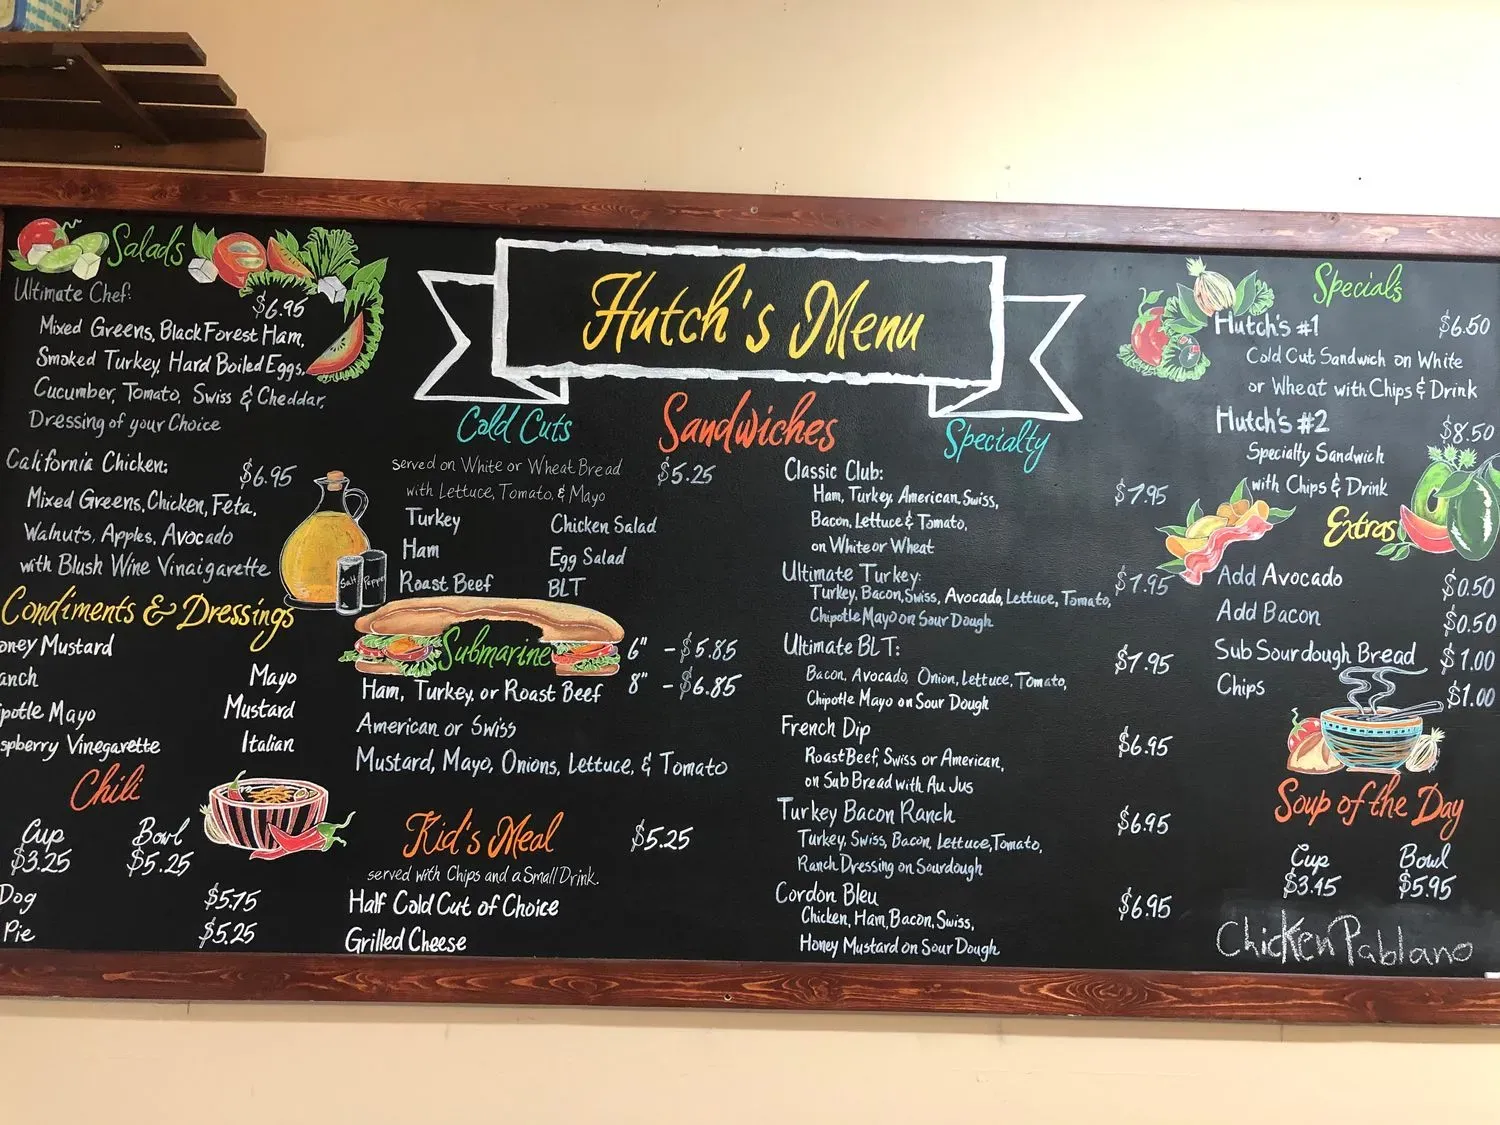 Hutch's Menu
Salads
Ultimate Chef:
$6.95
Mixed Greens, Black Forest Ham,
Smoked Turkey, Hard Boiled Eggs,
Cucumber, Tomato, Swiss & Cheddar,
Dressing of your Choice
California Chicken:
$6.95
Mixed Greens, Chicken, Feta,
Walnuts, Apples, Avocado
with Blush Wine Vinaigarette
Salt
Peppe
Condiments & Dressings
oney Mustard
anch
Mayo
ipotle Mayo
Mustard
spberry Vinegarette
Italian
Chili
Cup Bowl
$3.25 $5.25
Dog $5.75
Pie $5.25
Sandwiches
Cold Cuts
served on White or Wheat Bread $5.25
with Lettuce, Tomato, & Mayo
Turkey Chicken Salad
Ham Egg Salad
Roast Beef BLT
Submarine
6" - $5.85
8" - $6.85
Ham, Turkey, or Roast Beef
American or Swiss
Mustard, Mayo, Onions, Lettuce, & Tomato
Kid's Meal $5.25
served with Chips and a Small Drink.
Half Cold Cut of Choice
Grilled Cheese
Specialty
Classic Club:
Ham, Turkey, American, Swiss, $7.95
Bacon, Lettuce & Tomato,
on White or Wheat
Ultimate Turkey: $7.95
Turkey, Bacon, Swiss, Avocado, Lettuce, Tomato,
Chipotle Mayo on Sour Dough
Ultimate BLT: $7.95
Bacon, Avocado, Onion, Lettuce, Tomato,
Chipotle Mayo on Sour Dough
French Dip $6.95
Roast Beef, Swiss or American,
on Sub Bread with Au Jus
Turkey Bacon Ranch $6.95
Turkey, Swiss, Bacon, Lettuce, Tomato,
Ranch Dressing on Sourdough
Cordon Bleu $6.95
Chicken, Ham, Bacon, Swiss,
Honey Mustard on Sour Dough
Specials
Hutch's #1 $6.50
Cold Cut Sandwich on White
or Wheat with Chips & Drink
Hutch's #2 $8.50
Specialty Sandwich
with Chips & Drink
Extras
Add Avocado $0.50
Add Bacon $0.50
Sub Sourdough Bread $1.00
Chips $1.00
Soup of the Day
Cup Bowl
$3.45 $5.95
Chicken Pablano